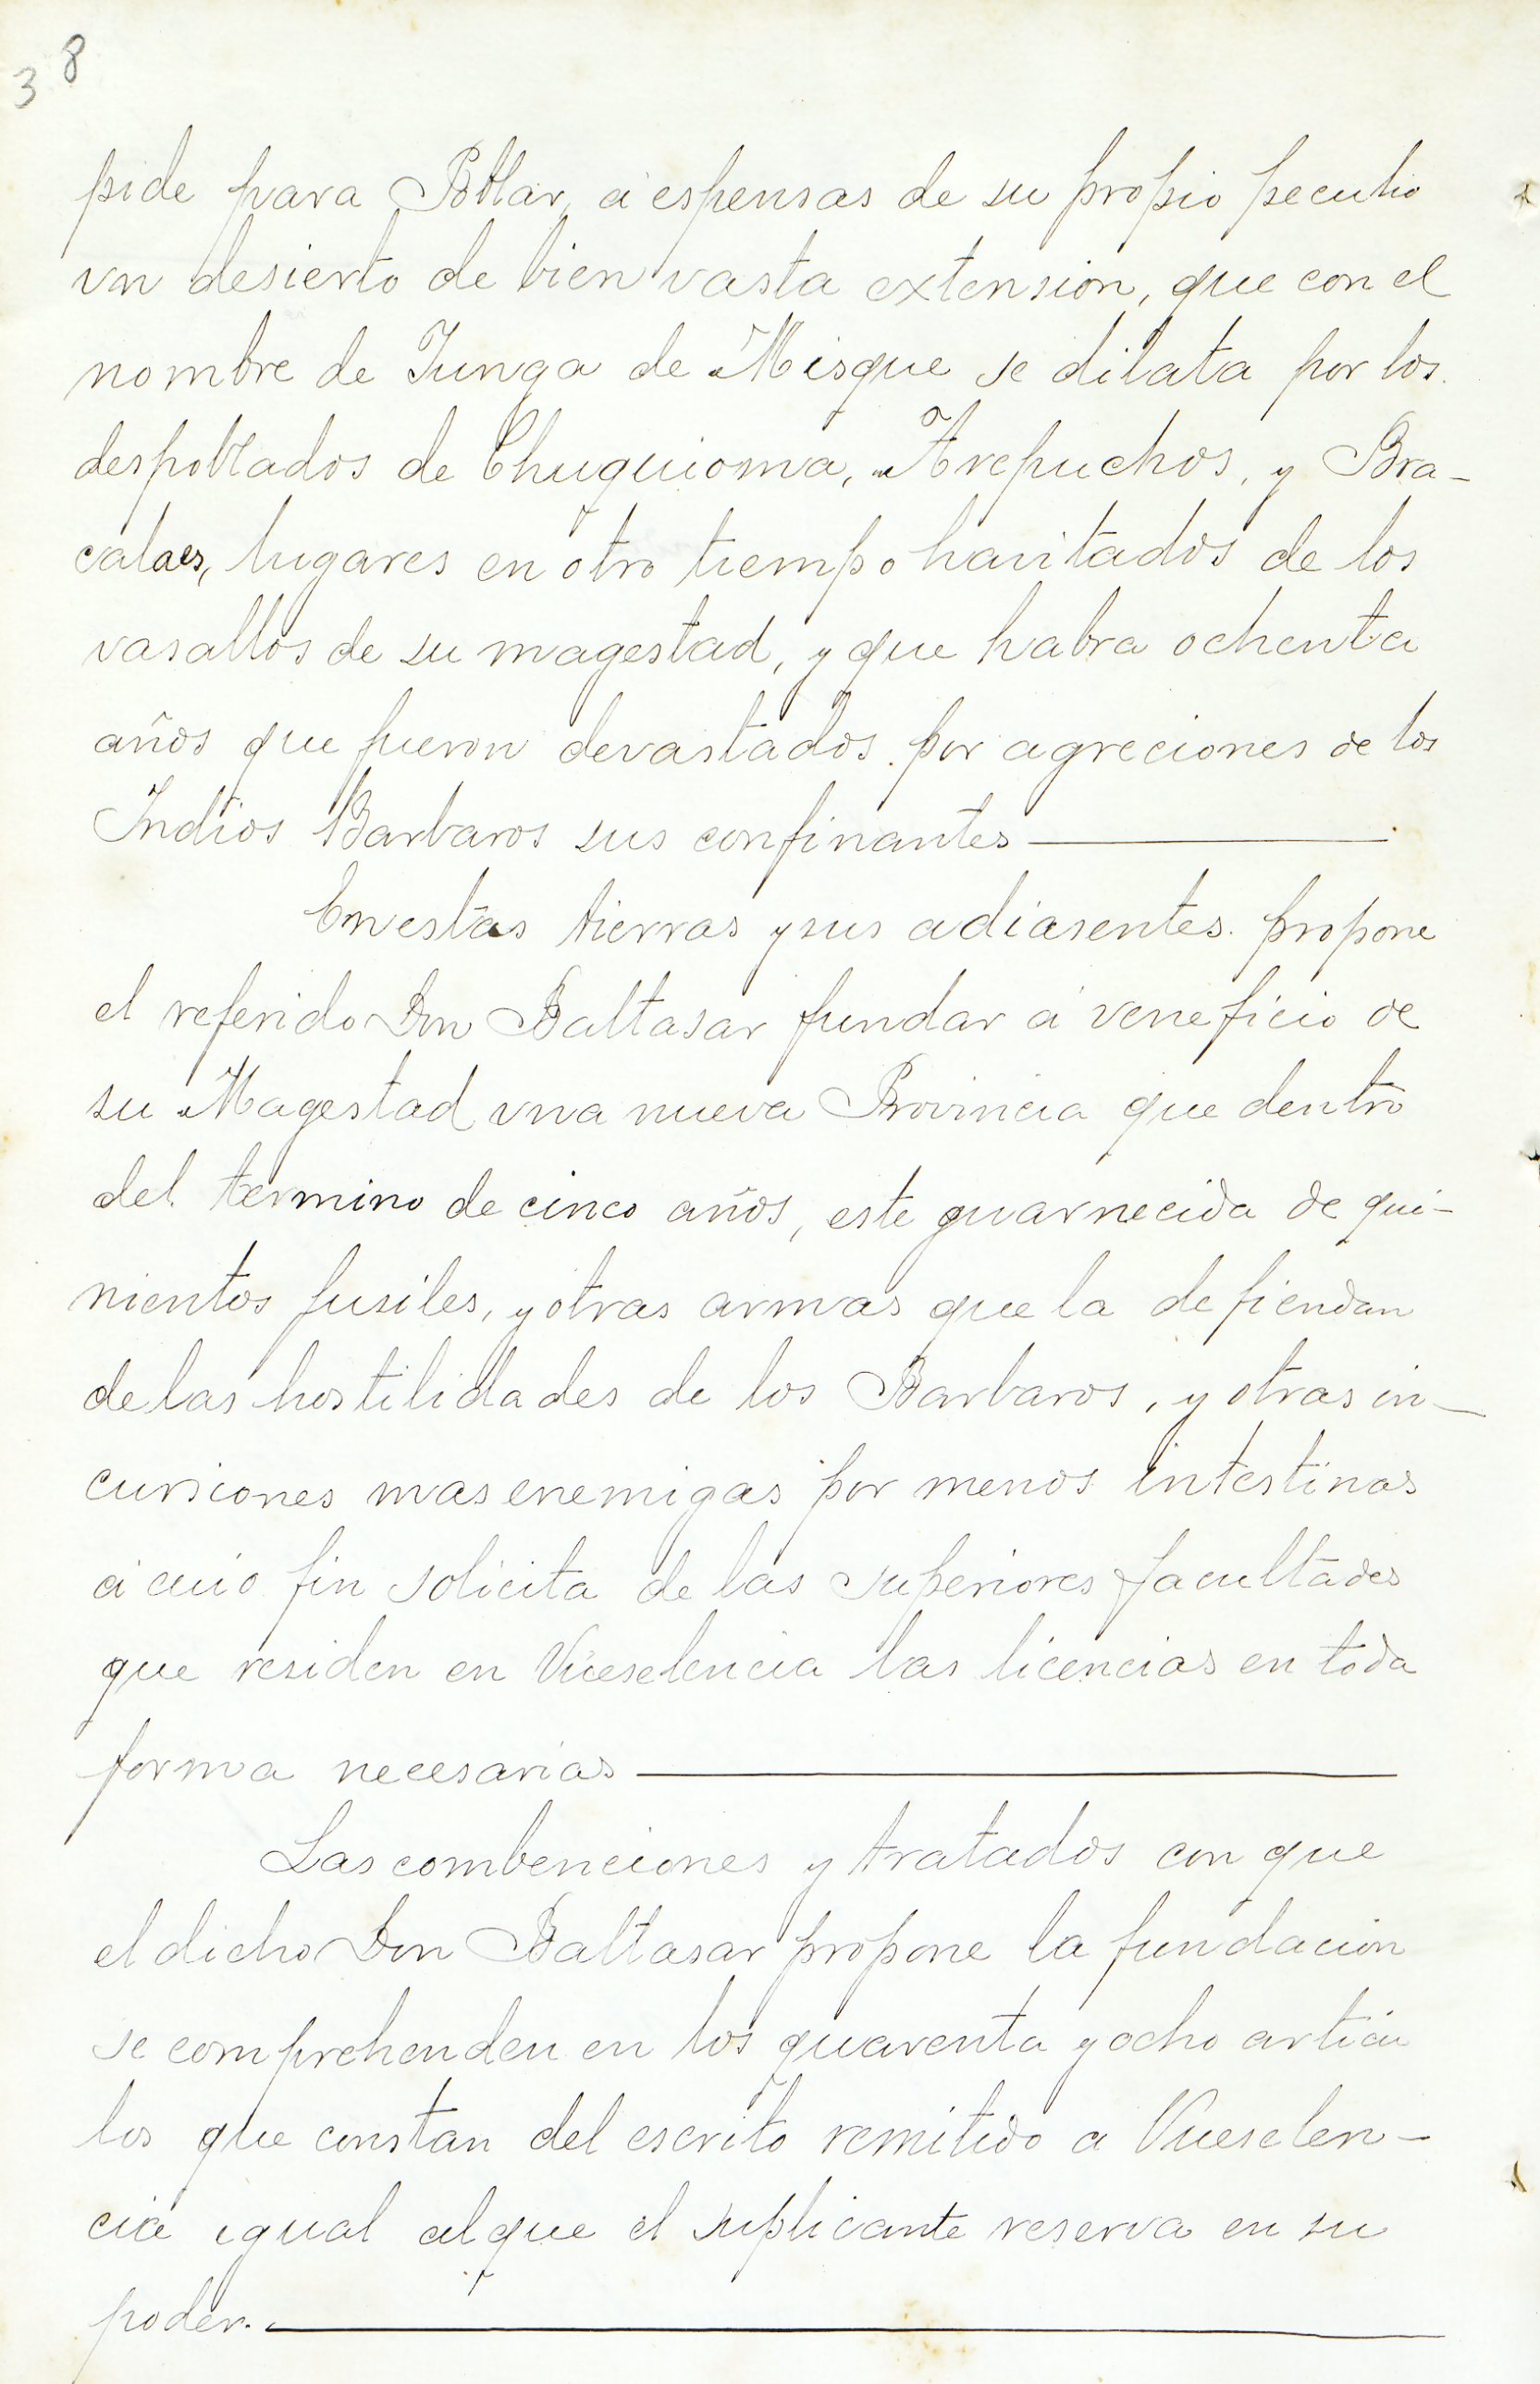 38
pide para Poblar, á espensas de su propio peculio
vn desierto de bien vasta extension, que con el
nombre de Iunga de Misque se dilata por los
despoblados de Chuquioma, Arepuchos, y Bra-
calaes, lugares en otro tiempo havitados de los
vasallos de su magestad, y que habra ochenta
años que fueron devastados por agreciones de los
Indios Barbaros sus confinantes
En estas tierras y sus adiasentes propone
el referido Don Baltasar fundar á veneficio de
su Magestad vna nueva Provincia que dentro
del termino de cinco años, este guarnecida de qui-
nientos fusiles, y otras armas que la defiendan
de las hostilidades de los Barbaros, y otras in-
curciones mas enemigas por menos intestinas
á cuio fin solicita de las superiores facultades
que residen en Vueselencia las licencias en toda
forma necesarias
Las combenciones y tratados con que
el dicho Don Baltasar propone la fundacion
se comprehenden en los quarenta y ocho articu
los que constan del escrito remitido a Vueselen-
cia igual al que el suplicante reserva en su
poder.